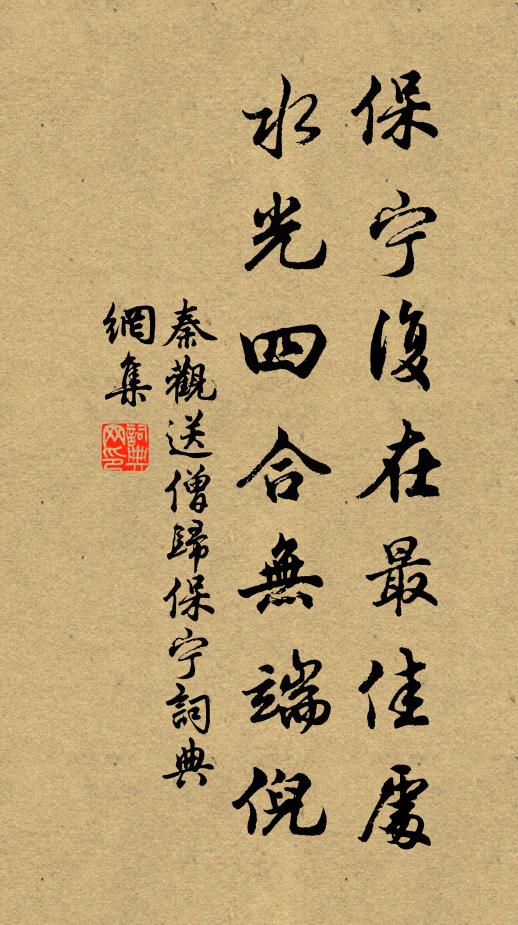 保宁復在最佳處
水光四合無端倪
秦觀送僧歸保宁詞典
網集
詞典
网印